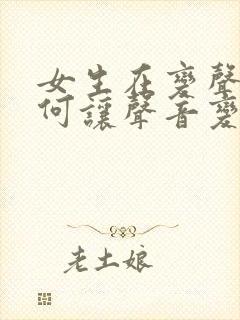 女生在變聲
何讓聲音變
老土娘